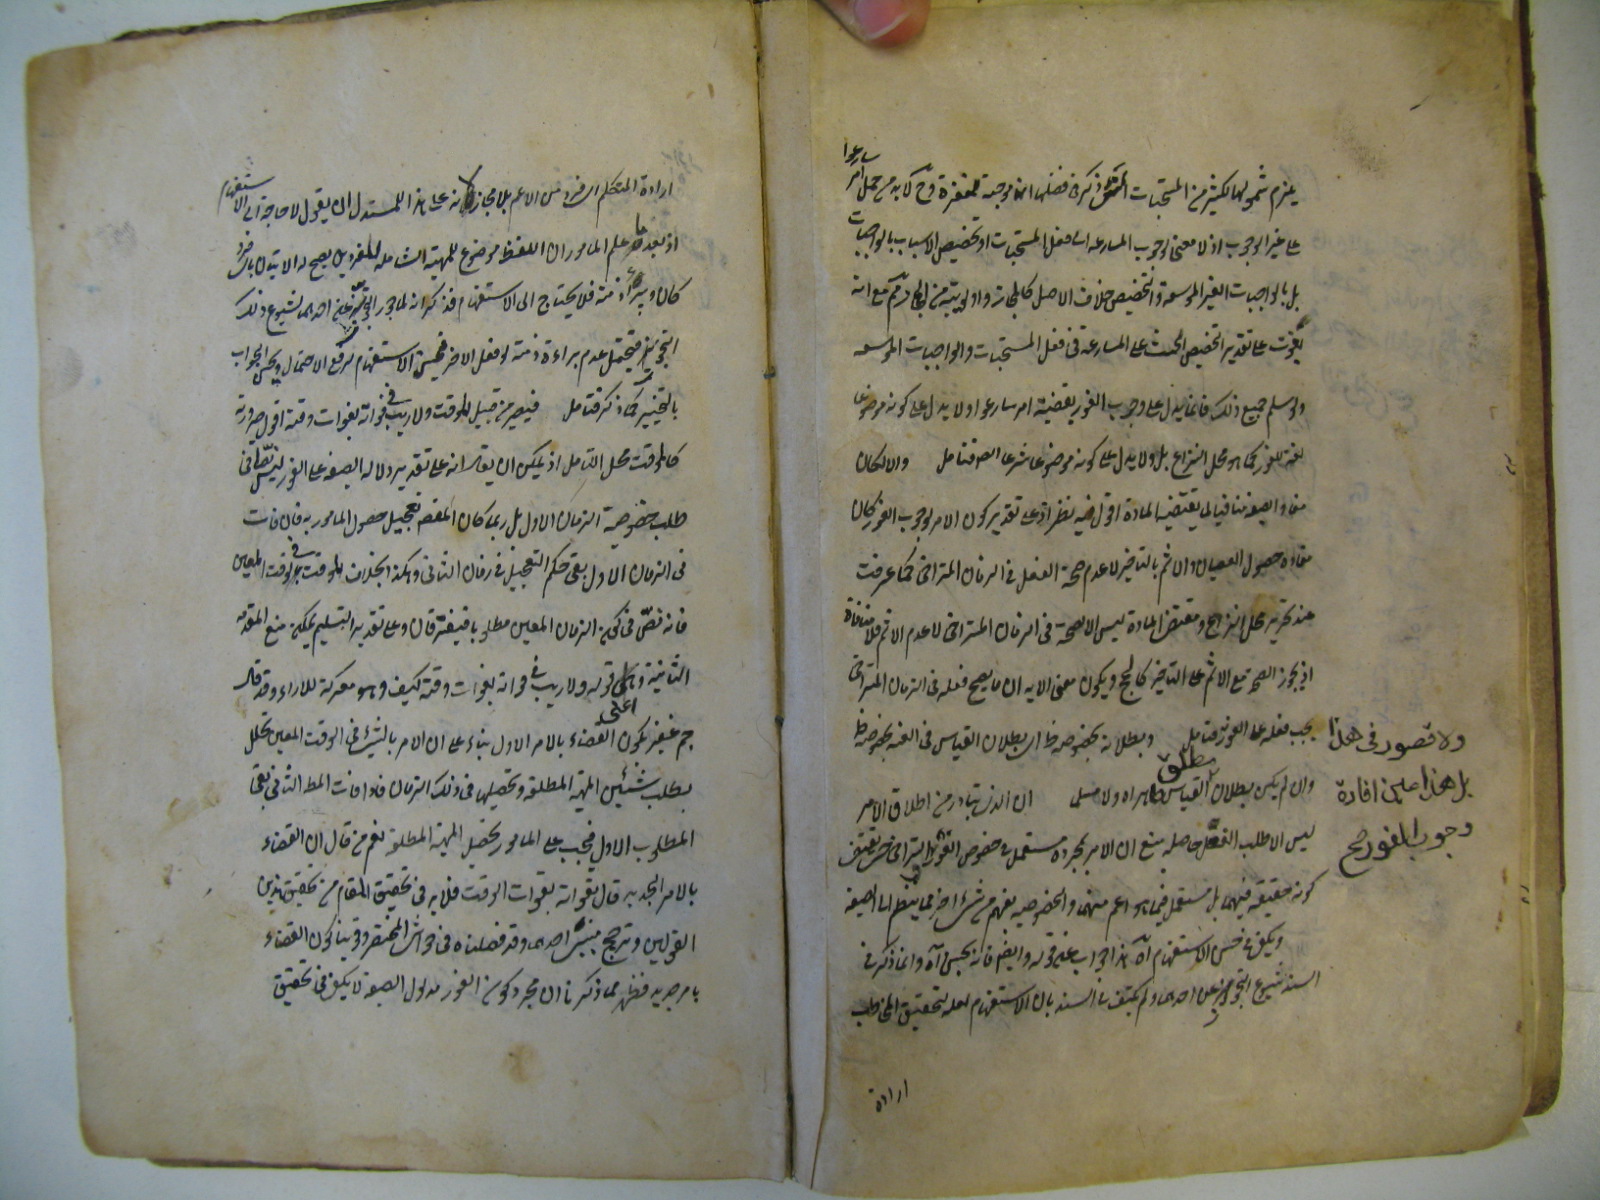 يلزم شمولها لكثير من المستحبات التي ذكر في فضلها انها موجبة للمغفرة وح لا بد من حمل امر سارعوا
على غير الوجوب اذ لا معنى لوجوب المسارعة الى فعل المستحبات او تخصيص الاسباب بالواجبات
بل بالواجبات الغير الموسعة والتخصيص خلاف الاصل كالمجاز واولويته من المجاز مع انه
يفوت على تقدير التخصيص الحث على المسارعة في فعل المستحبات والواجبات الموسعة
ولو سلم جميع ذلك فانما يدل على وجوب الفور بقضية امر سارعوا ولا يدل على كونه موضوعا
لغة للفور كما هو محل النزاع بل ولا يدل على كونه موضوعا شرعا الفور فتامل والا لكان
مفاد الصيغة منافيا لما يقتضيه المادة اقول فيه نظر اذ على تقدير كون الامر لوجوب الفور كان
مفاده حصول العصيان والاثم بالتاخير لا عدم صحة الفعل في الزمان المتراخي كما عرفت
عند تحرير محل النزاع ومقتضى المادة ليس الا الصحة في الزمان المتراخي لا عدم الاثم فلا منافاة
اذ يجوز الصحة مع الاثم على التاخير كالحج ويكون معنى الاية ان ما يصح فعله في الزمان المتراخي
يجب فعله على الفور فتامل وبطلانه بخصوصه ظ اي بطلان القياس في اللغة بخصوصه ظ
وان لم يكن بطلان القياس مطلق ظاهرا ولا مسلما ان الذي يتبادر من اطلاق الامر
ليس الا طلب الفعل حاصله منع ان الامر بمجرده مستعمل في خصوص الفور والتراخي حتى يقتضي
كونه حقيقة فيهما بل مستعمل فيما هو اعم منهما والخصوصية يفهم من شيء اخر مما ينظم الى الصيغة
ويكفي في حسن الاستفهام آه هذا جواب عن قوله وايضا فانه يحسن آه وانما ذكر في
السند شيوع التجوز به عن احدهما ولم يكتف في السند بان الاستفهام لعله لتحقيق المخاطب
ولا قصور في هذا
بل هذا معين افادة
وجوب الفور صح
ارادة
ارادة المتكلم اي فرد من الاعم بلا مجاز لانه على هذا للمستدل ان يقول لا حاجة الى الاستفهام
اذ بعد ما علم المامور ان اللفظ موضوع للمهية الشاملة للفردين يصح له الاتيان باي فرد
كان ويبرأ ذمته فلا يحتاج الى الاستفهام فذكر انه لما جوز التجوز به عن احدهما لشيوع ذلك
التجوز فيحتمل عدم براءة ذمته لو فعل الاخر فيحسن الاستفهام لرفع الاحتمال ويحسن الجواب
بالتخيير كما ذكر فتامل فيصير من قبيل الموقت ولا ريب في فواته بفوات وقته اقول صيرورته
كالموقت محل التامل اذ يمكن ان يقال انه على تقدير دلالة الصيغة على الفور ليس نصا في
طلب خصوصية الزمان الاول بل ربما كان المقصود تعجيل حصول المامور به فان فات
في الزمان الاول بقي حكم التعجيل في زمان الثاني وهكذا بخلاف الموقت في الوقت المعين
فانه نص في كون الزمان المعين مطلوبا فيفترقان وعلى تقدير التسليم يمكن منع المقدمة
الثانية وهي قوله ولا ريب في فواته بفوات وقته كيف وهو معركة للاراء وقد قال
جم غفير بكون القضاء بالامر الاول بناء على ان الامر بالشيء في الوقت المعين تحلل
بطلب شيئين المهية المطلقة وتحصيلها في ذلك الزمان فاذا فات المط الثاني بقي
المطلوب الاول فيجب على المامور تحصيل المهية المطلقة نعم من قال ان القضاء
بالامر الجديد قال بفواته بفوات الوقت فلا بد في تحقيق المقام من تحقيق هذين
القولين وترجيح احدهما وقد فصلناه في حواشي المختصر وقوينا كون القضاء
بامر جديد فظهر مما ذكرنا ان مجرد كون الفور مدلول الصيغة لا يكفي في تحقيق